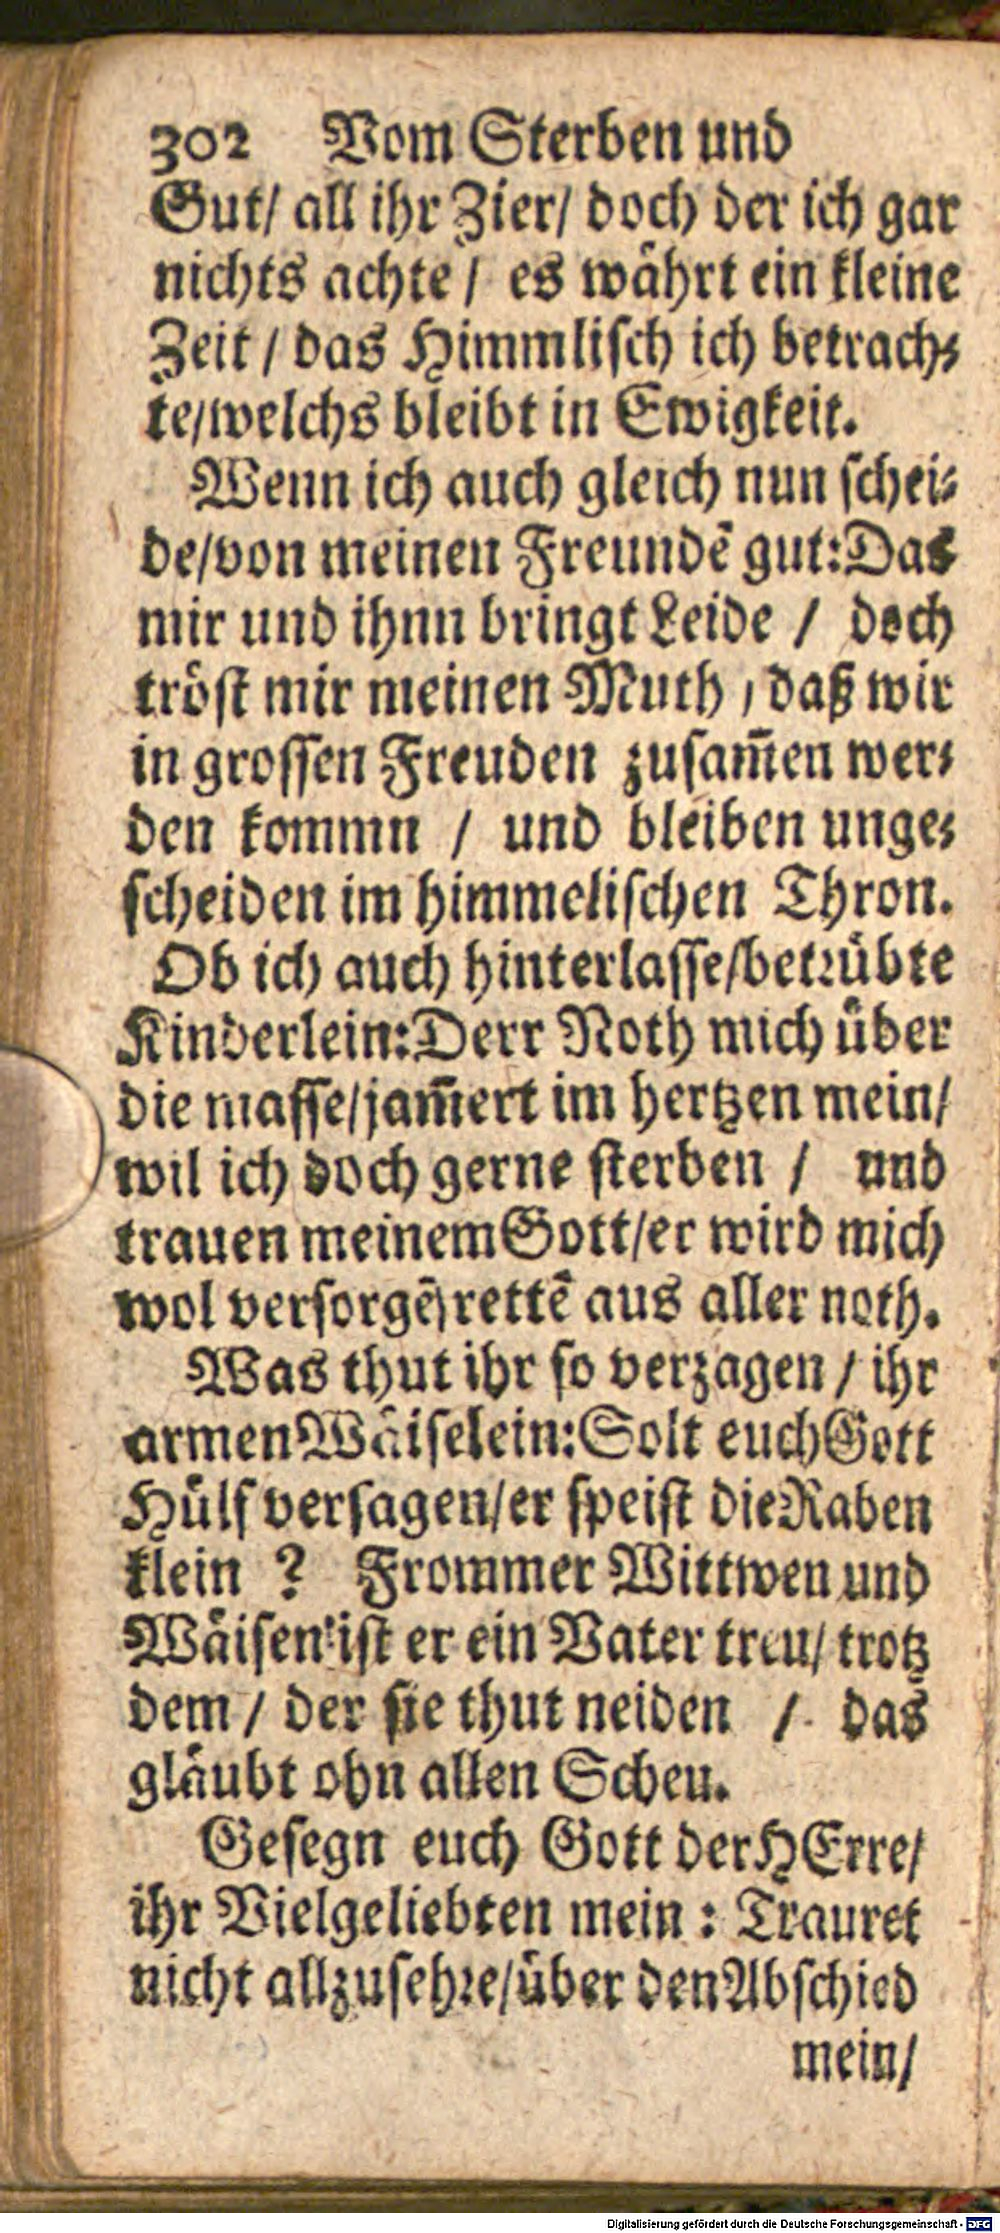 302 Vom Sterben und
Gut/ all ihr Zier/ doch der ich gar
nichts achte / es währt ein kleine
Zeit / das Himmlisch ich betrach-
te/welchs bleibt in Ewigkeit.
Wenn ich auch gleich nun schei-
de/von meinen Freundẽ gut:Das
mir und ihnn bringt Leide / doch
tröst mir meinen Muth / daß wir
in grossen Freuden zusam̃en wer-
den kommn / und bleiben unge-
scheiden im himmelischen Thron.
Ob ich auch hinterlasse/betrübte
Kinderlein:Derr Noth mich über
die masse/jam̃ert im hertzen mein/
wil ich doch gerne sterben / und
trauen meinem Gott/er wird mich
wol versorgẽ/rettẽ aus aller noth.
Was thut ihr so verzagen / ihr
armen Wäiselein:Solt euch Gott
Hülf versagen/er speist die Raben
klein ? Frommer Wittwen und
Wäisen ist er ein Vater treu/ trotz
dem / der sie thut neiden / das
gläubt ohn allen Scheu.
Gesegn euch Gott der HErre/
ihr Vielgeliebten mein : Trauret
nicht allzusehre/über den Abschied
mein/
Digitalisierung gefördert durch die Deutsche Forschungsgemeinschaft - DFG